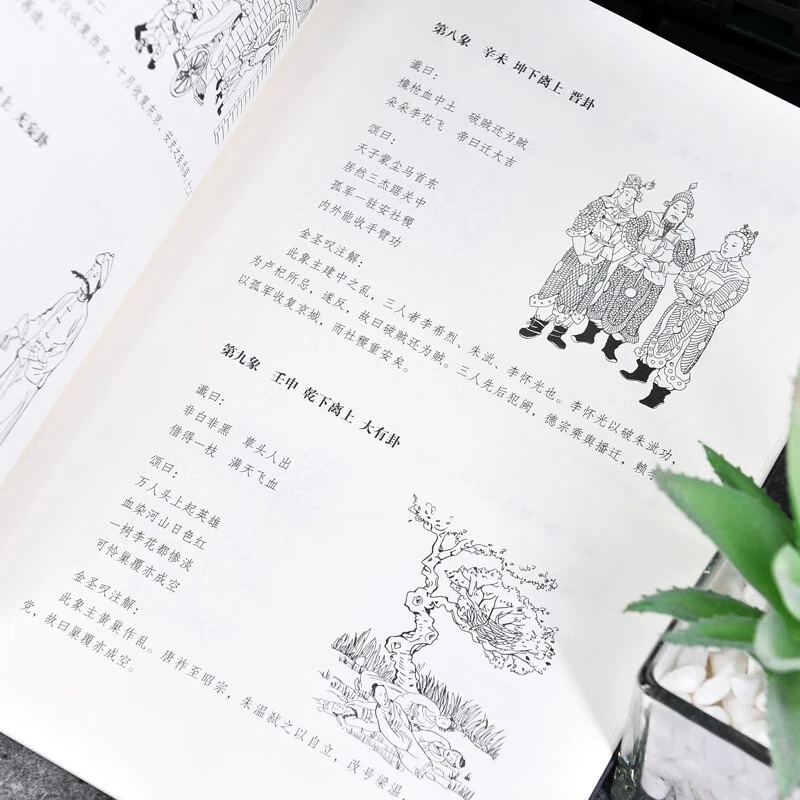 收复西京，十月收复东京，安史之乱尽
上 无妄卦
第八象 辛未 坤下离上 晋卦
谶曰：
欃枪血中土 破贼还为贼
朵朵李花飞 帝曰迁大吉
颂曰：
天子蒙尘马首东
居然三杰踞关中
孤军一驻安社稷
内外能收手臂功
金圣叹注解：
此象主建中之乱，三人者李希烈、朱泚、李怀光也。李怀光以破朱泚功，
为卢杞所忌，遂反，故曰破贼还为贼。三人先后犯阙，德宗乘舆播迁，赖李
以孤军收复京城，而社稷重安矣。
第九象 壬申 乾下离上 大有卦
谶曰：
非白非黑 草头人出
借得一枝 满天飞血
颂曰：
万人头上起英雄
血染河山日色红
一树李花都惨淡
可怜巢覆亦成空
金圣叹注解：
此象主黄巢作乱。唐祚至昭宗，朱温弑之以自立，改号梁温，
党，故曰巢覆亦成空。